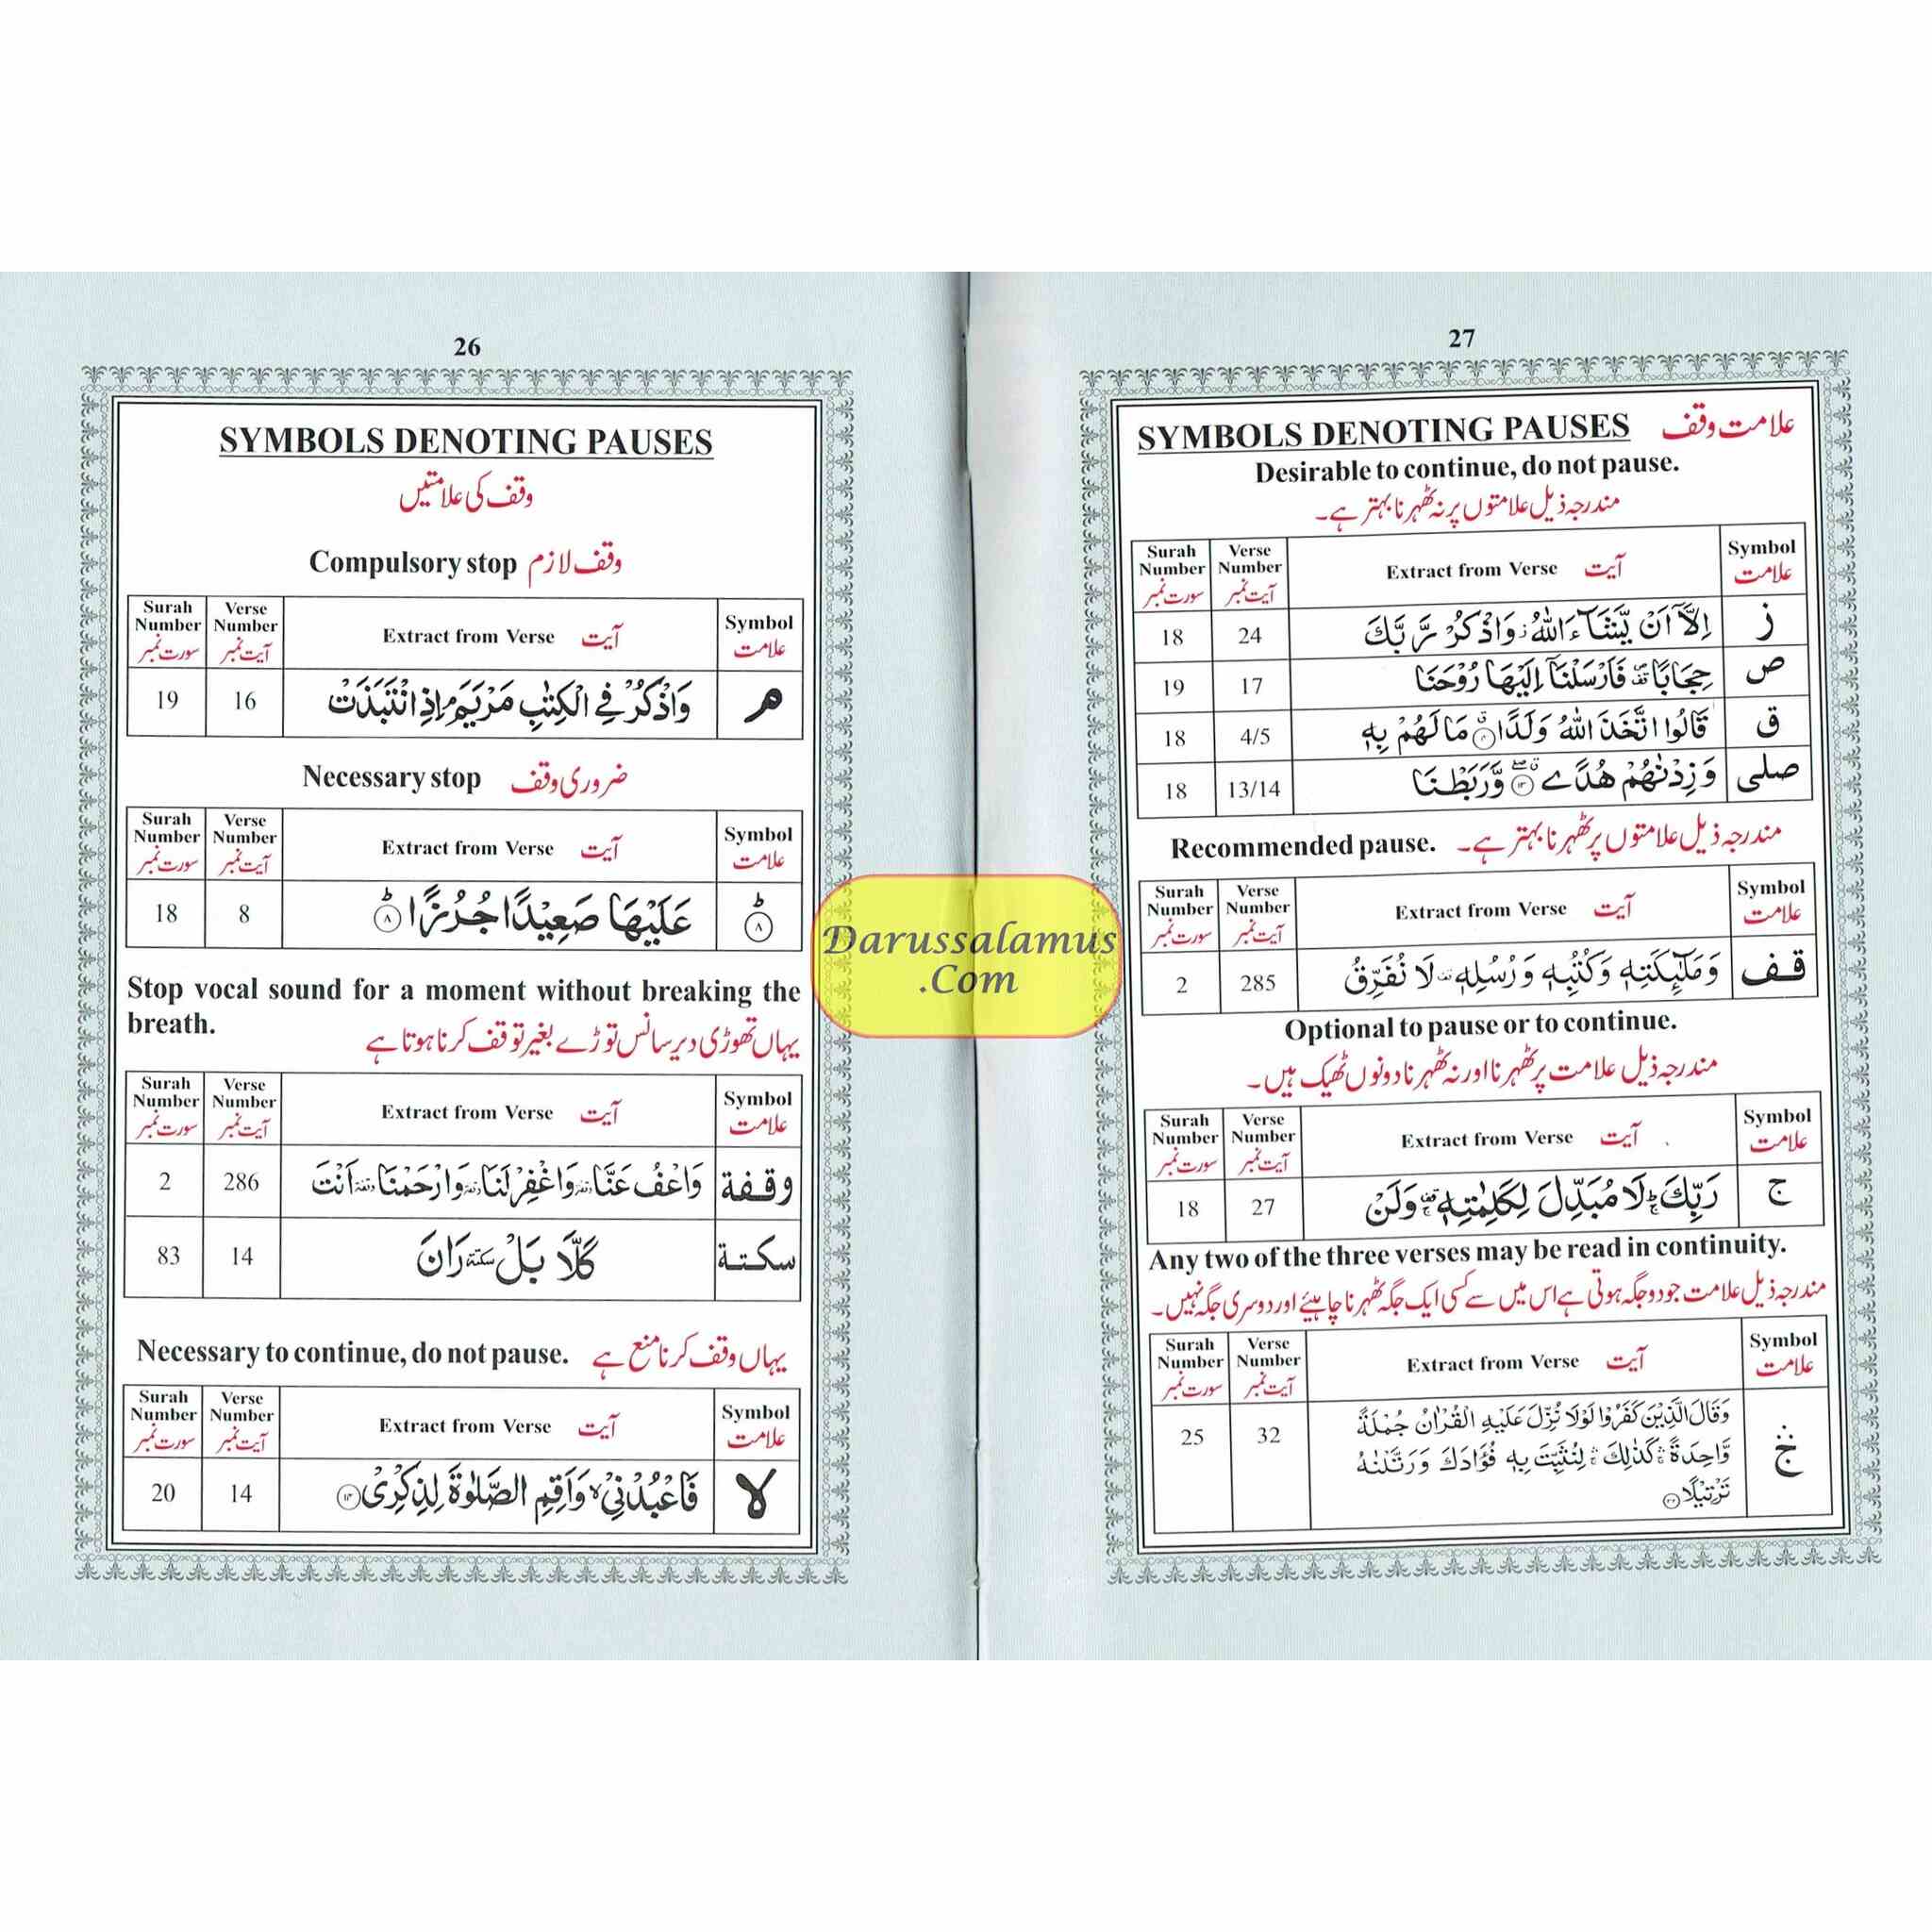 26
SYMBOLS DENOTING PAUSES
وقف کی علامتیں
Compulsory stop وقف لازم
Surah Number سورت نمبر Verse Number آیت نمبر Extract from Verse آیت Symbol علامت
19 16 وَاذْكُرْ فِي الْكِتٰبِ مَرْيَمَ ۘ اِذِ انْتَبَذَتْ م
Necessary stop ضروری وقف
Surah Number سورت نمبر Verse Number آیت نمبر Extract from Verse آیت Symbol علامت
18 8 عَلَيْهَا صَعِيْدًا جُرُزًا ؕ۝۸ ؕ۝۸
Stop vocal sound for a moment without breaking the
breath.
یہاں تھوڑی دیر سانس توڑے بغیر توقف کرنا ہوتا ہے
Surah Number سورت نمبر Verse Number آیت نمبر Extract from Verse آیت Symbol علامت
2 286 وَاعْفُ عَنَّا وقفة وَاغْفِرْ لَنَا وقفة وَارْحَمْنَا وقفة اَنْتَ وقفة
83 14 كَلَّا بَلْ سكتة رَانَ سكتة
Necessary to continue, do not pause. یہاں وقف کرنا منع ہے
Surah Number سورت نمبر Verse Number آیت نمبر Extract from Verse آیت Symbol علامت
20 14 فَاعْبُدْنِيْ ۙ وَاَقِمِ الصَّلٰوةَ لِذِكْرِيْ ۝۱۴ لا
27
SYMBOLS DENOTING PAUSES علامت وقف
Desirable to continue, do not pause.
مندرجہ ذیل علامتوں پر نہ ٹھہرنا بہتر ہے۔
Surah Number سورت نمبر Verse Number آیت نمبر Extract from Verse آیت Symbol علامت
18 24 اِلَّآ اَنْ يَّشَآءَ اللّٰهُ ز وَاذْكُرْ رَّبَّكَ ز
19 17 حِجَابًا فَاَرْسَلْنَآ اِلَيْهَا رُوْحَنَا ص
18 4/5 قَالُوا اتَّخَذَ اللّٰهُ وَلَدًا ق ۝ مَا لَهُمْ بِهٖ ق
18 13/14 وَزِدْنٰهُمْ هُدًى ۝۱۳ وَّرَبَطْنَا صلى
Recommended pause. مندرجہ ذیل علامتوں پر ٹھہرنا بہتر ہے۔
Surah Number سورت نمبر Verse Number آیت نمبر Extract from Verse آیت Symbol علامت
2 285 وَمَلٰٓئِكَتِهٖ وَكُتُبِهٖ وَرُسُلِهٖ قف لَا نُفَرِّقُ قف
Optional to pause or to continue.
مندرجہ ذیل علامت پر ٹھہرنا اور نہ ٹھہرنا دونوں ٹھیک ہیں۔
Surah Number سورت نمبر Verse Number آیت نمبر Extract from Verse آیت Symbol علامت
18 27 رَبِّكَ لَا مُبَدِّلَ لِكَلِمٰتِهٖ وَلَنْ ج
Any two of the three verses may be read in continuity.
مندرجہ ذیل علامت جو دو جگہ ہوتی ہے اس میں سے کسی ایک جگہ ٹھہرنا چاہیئے اور دوسری جگہ نہیں۔
Surah Number سورت نمبر Verse Number آیت نمبر Extract from Verse آیت Symbol علامت
25 32 وَقَالَ الَّذِيْنَ كَفَرُوْا لَوْلَا نُزِّلَ عَلَيْهِ الْقُرْاٰنُ جُمْلَةً
وَّاحِدَةً ۛ كَذٰلِكَ ۛ لِنُثَبِّتَ بِهٖ فُؤَادَكَ وَرَتَّلْنٰهُ
تَرْتِيْلًا ۝۳۲
ج ۛ
Darussalamus
.Com